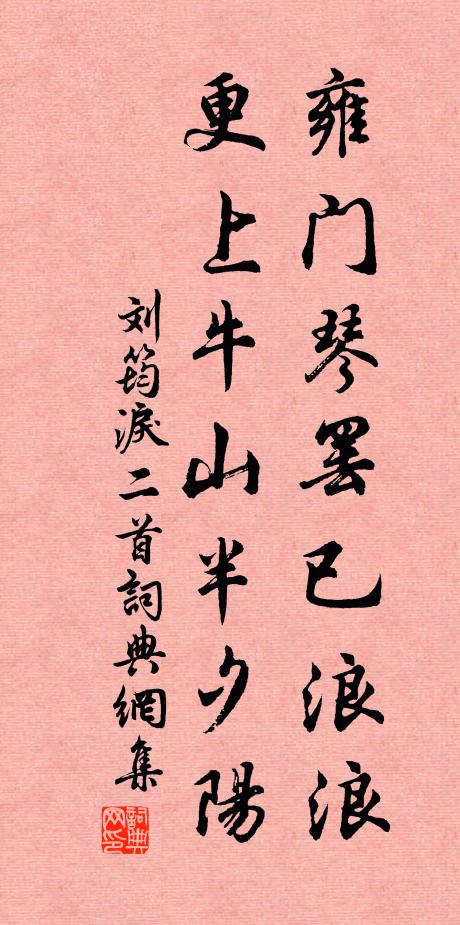 雍门琴罢已浪浪
更上牛山半夕陽
刘筠淚二首詞典網集
詞典网印